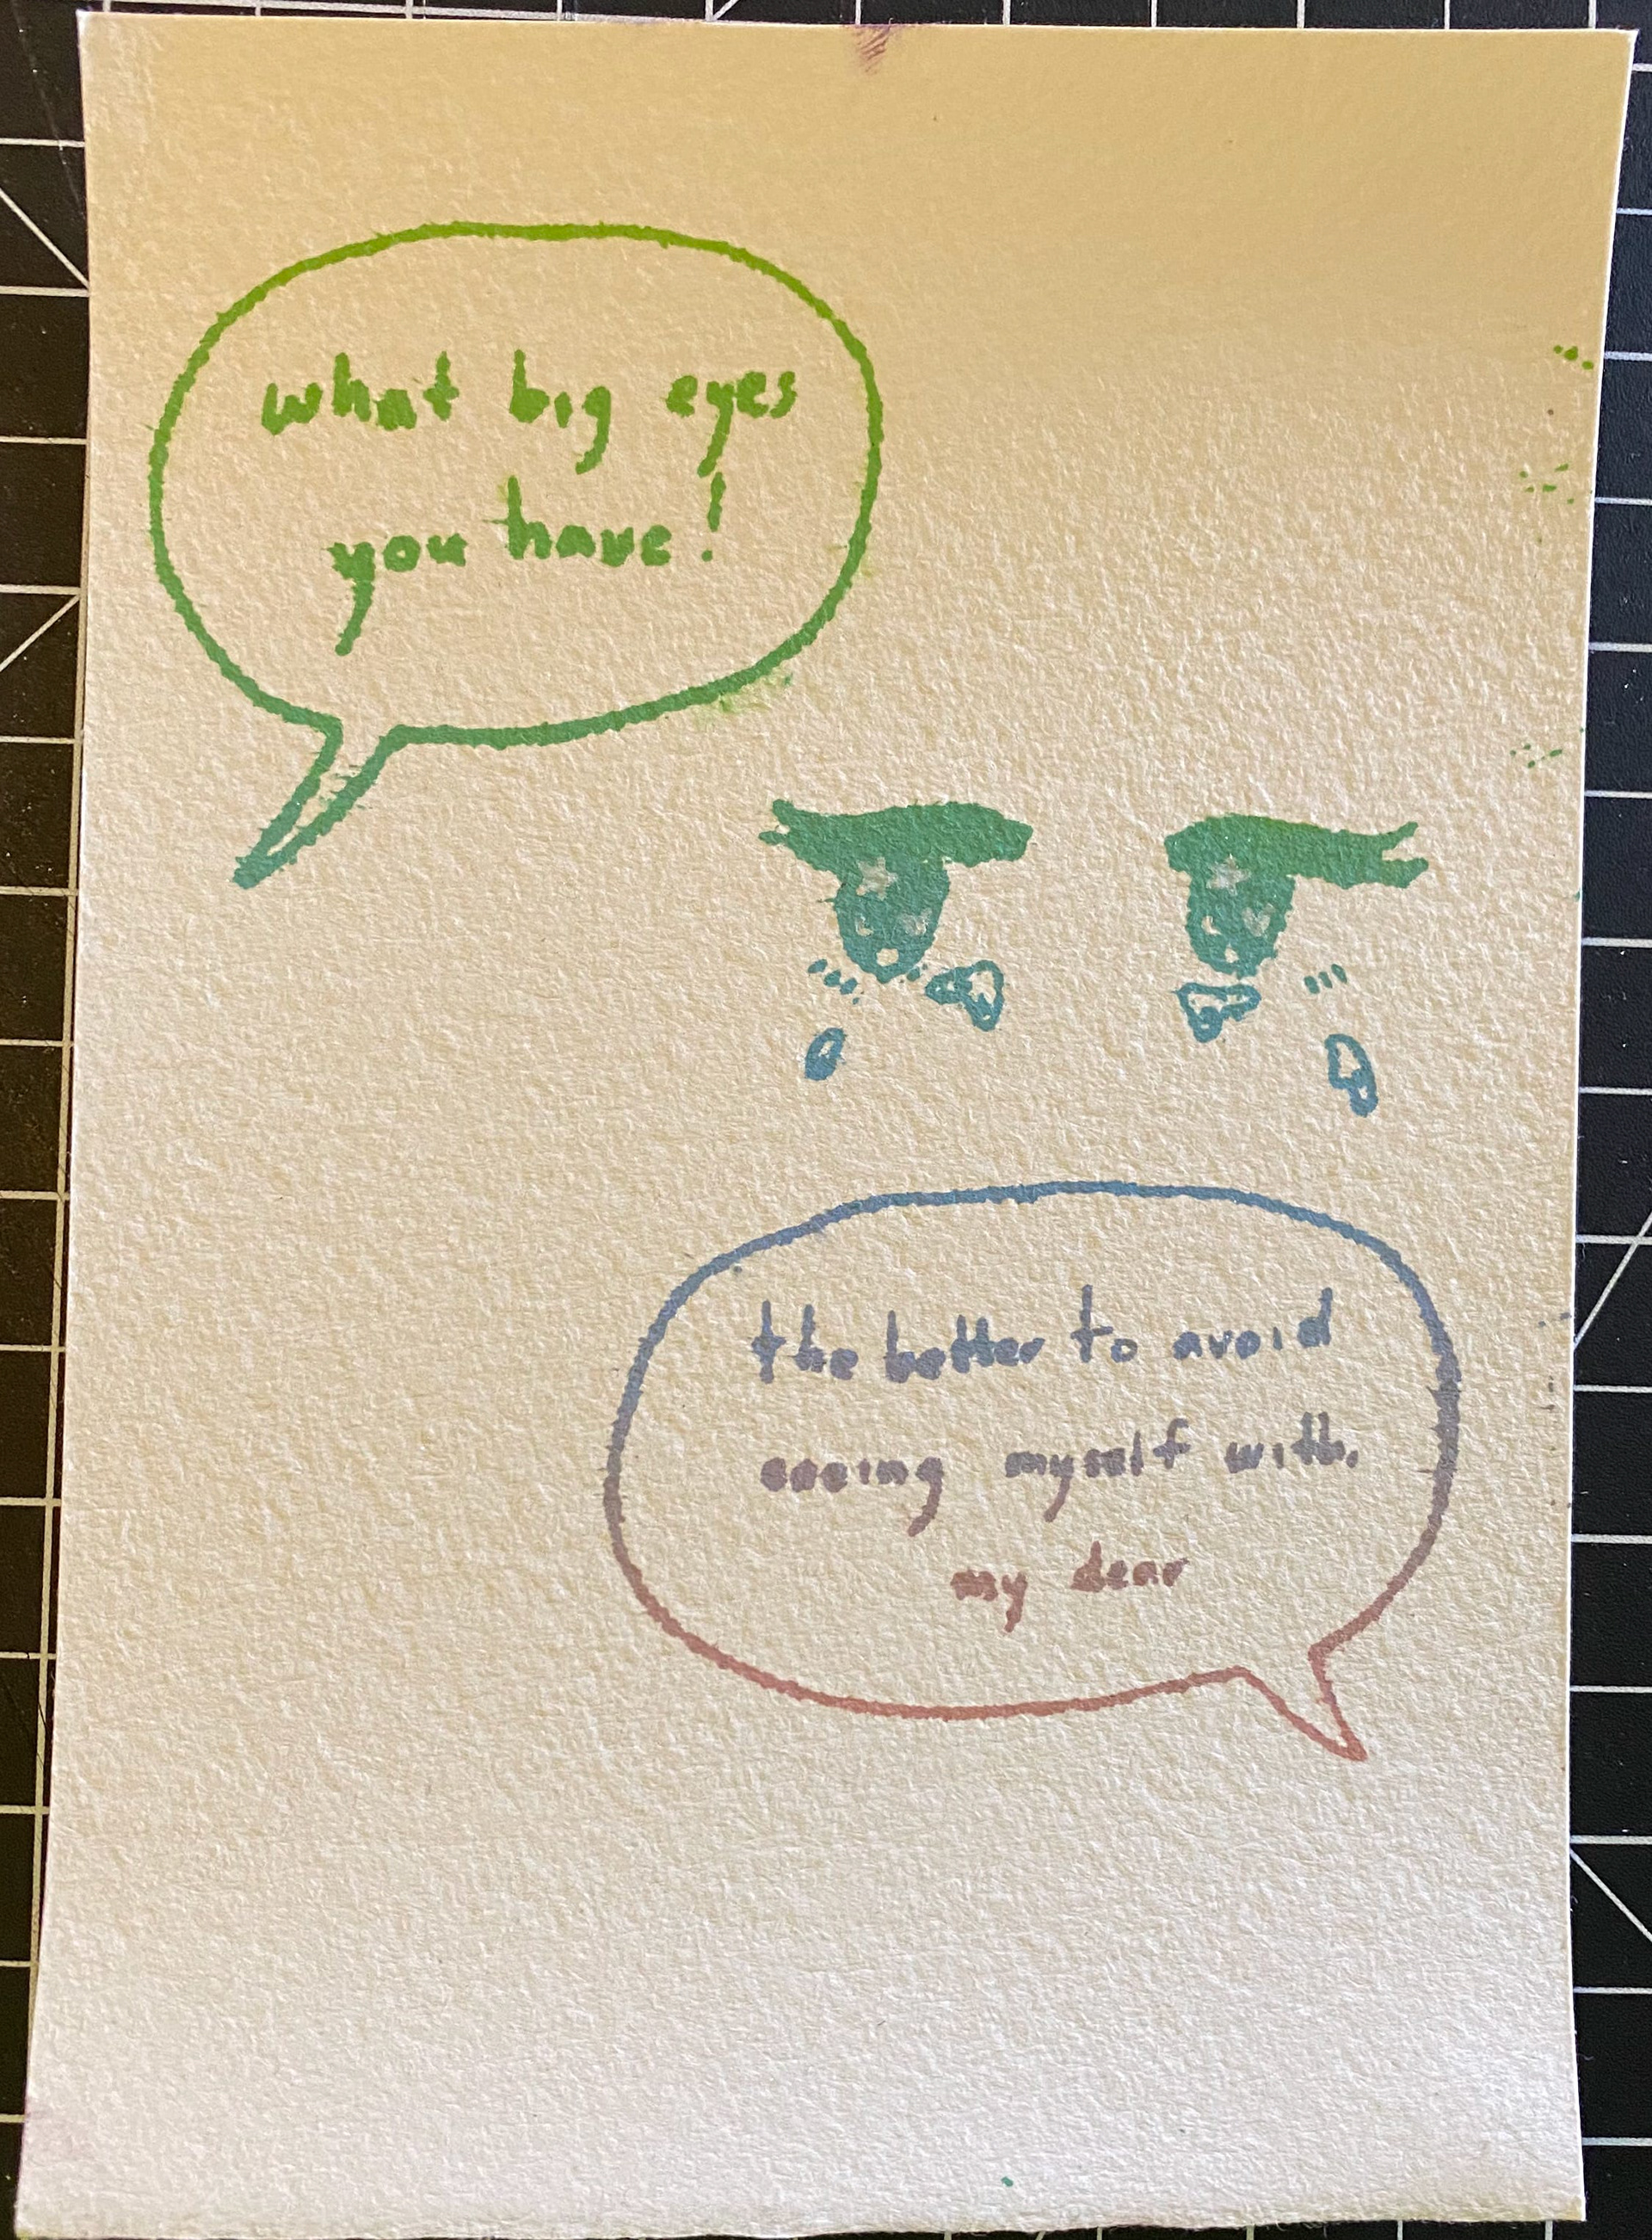 what big eyes
you have!
the better to avoid
seeing myself with,
my dear